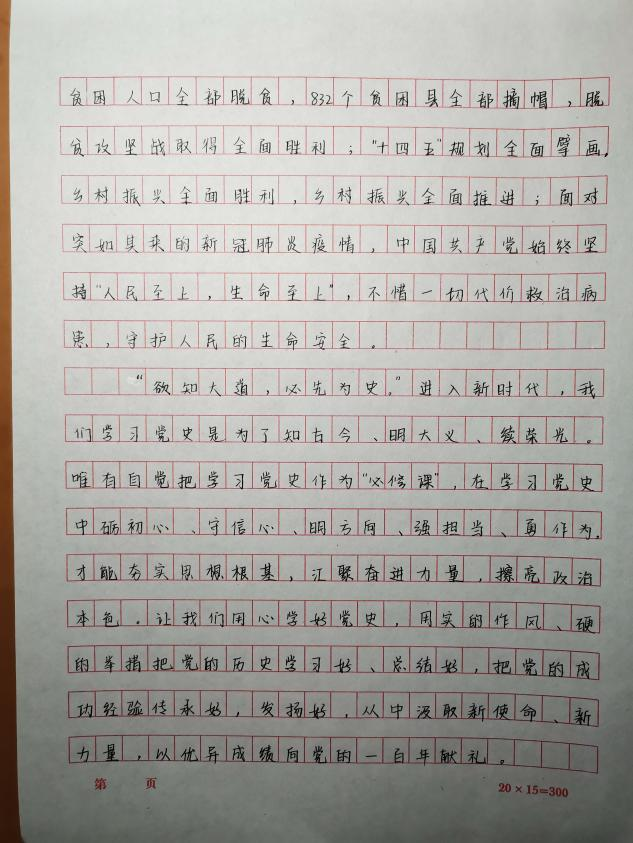 贫困人口全部脱贫，832个贫困县全部摘帽，脱
贫攻坚战取得全面胜利；“十四五”规划全面擘画，
乡村振兴全面胜利，乡村振兴全面推进；面对
突如其来的新冠肺炎疫情，中国共产党始终坚
持“人民至上，生命至上”，不惜一切代价救治病
患，守护人民的生命安全。
“欲知大道，必先为史。”进入新时代，我
们学习党史是为了知古今、明大义、续荣光。
唯有自觉把学习党史作为“必修课”，在学习党史
中砺初心、守信心、明方向、强担当、勇作为，
才能夯实思想根基，汇聚奋进力量，擦亮政治
本色。让我们用心学好党史，用实的作风、硬
的举措把党的历史学习好、总结好，把党的成
功经验传承好，发扬好，从中汲取新使命、新
力量，以优异成绩向党的一百年献礼。
第 页
20×15=300